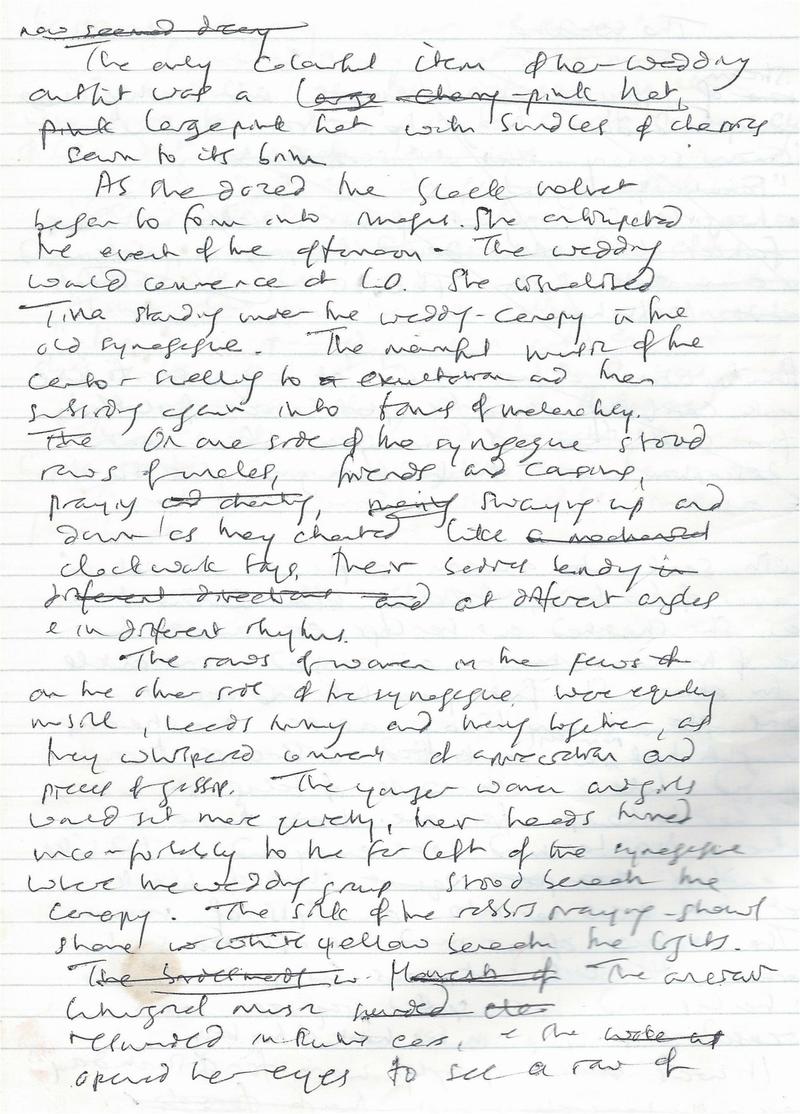 now seemed dreary
The only colourful item of her wedding
outfit was a large cherry-pink hat,
pink large pink hat with bundles of cherries
sewn to its brim
As she dozed the black velvet
began to form into images. She anticipated
the event of the afternoon. The wedding
would commence at 1.0. She visualised
Tina standing under the wedding-canopy in the
old synagogue. The mournful music of the
cantor swelling to a exultation and then
subsiding again into tones of melancholy.
The On one side of the synagogue stood
rows of males, friends and cousins,
praying and chanting, swaying up and
down as they chanted like a mechanised
clockwork toys, their bodies bending in
different directions and at different angles
& in different rhythms.
The rows of women in the pews
on the other side of the synagogue were equally
mobile, heads turning and together, as
they whispered comments of appreciation and
pieces of gossip. The younger women and girls
would sit more quietly, their heads turned
uncomfortably to the far left of the synagogue
where the wedding group stood beneath the
canopy. The silk of the rabbi's praying-shawl
shone white yellow beneath the lights.
The bridesmaids in of The ancient
liturgical music sounded
resounded in Ruth's ears, & she woke up
opened her eyes to see a row of